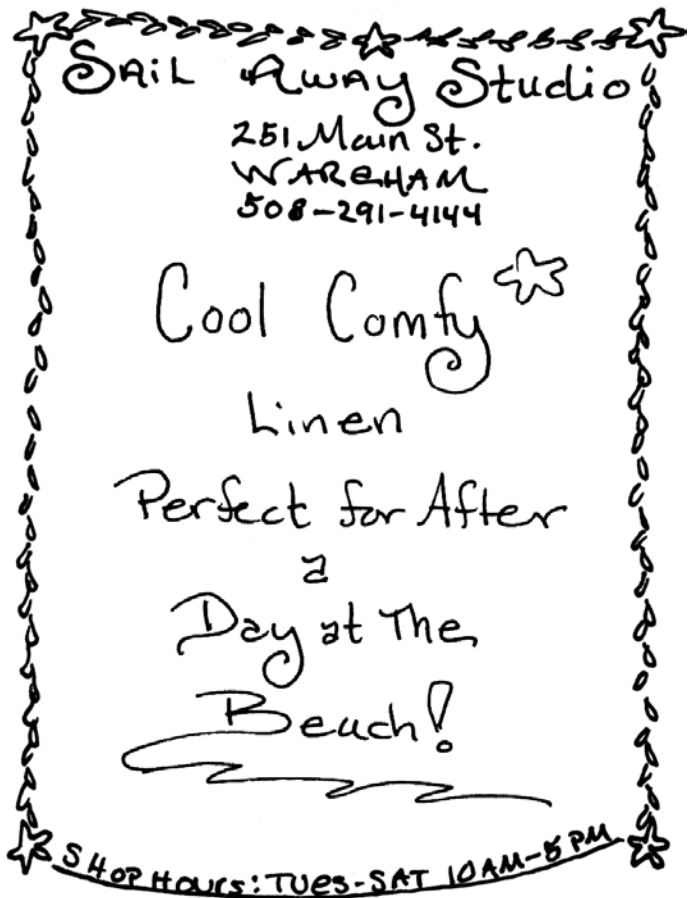 Sail Away Studio
251 Main St.
WAREHAM
508-291-4144
Cool Comfy
Linen
Perfect for After
a
Day at The
Beach!
SHOP HOURS: TUES-SAT 10AM-5PM